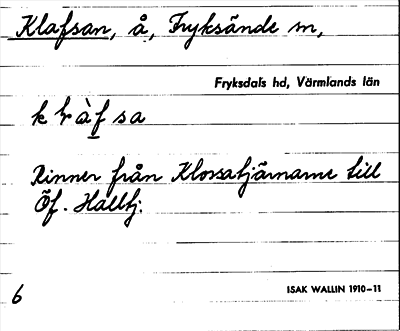 Klafsan, å, Fryksände sn,
Fryksdals hd, Värmlands län
k l à f sa
Rinner från Klossatjärnarne till
Öf. Halltj.
6
ISAK WALLIN 1910-11